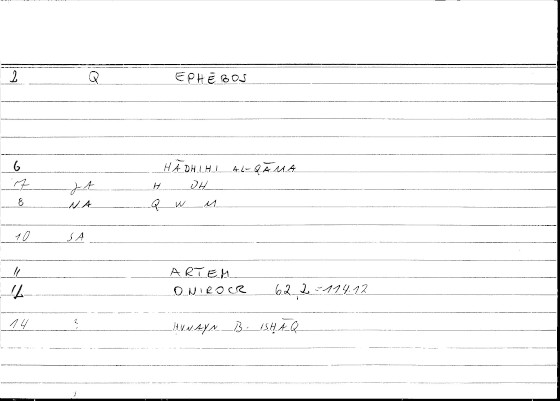 2 Q EPHĒBOS
6 HĀDHIHI AL-QĀMA
7 JA H DH
8 NA Q W M
10 SA
11 ARTEM
12 ONIROCR 62,2=114,12
14 ? ḤUNAYN B. ISḤĀQ